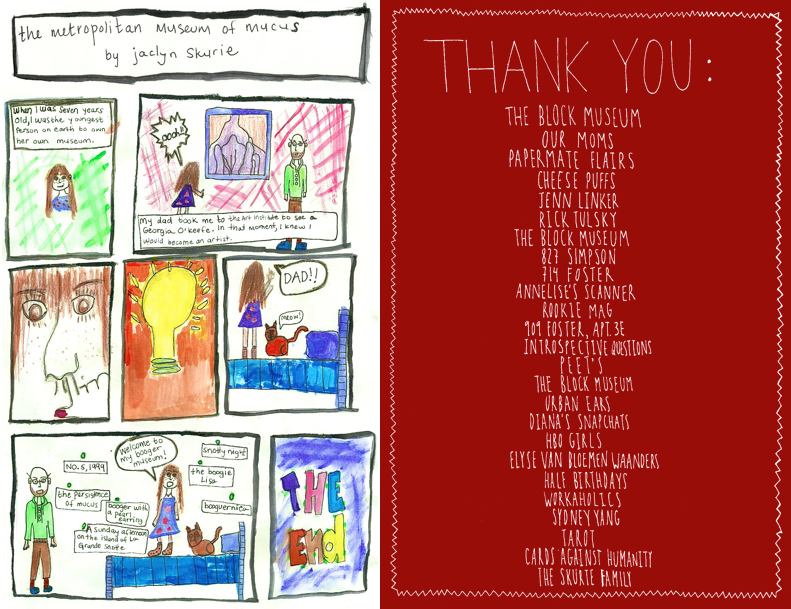 the metropolitan museum of mucus
by jaclyn skurie
When I was seven years
old, I was the youngest
person on earth to own
her own museum.
oooh!!
My dad took me to the Art Institute to see a
Georgia O'Keefe. In that moment, I knew I
would become an artist.
DAD!!
meow!
Welcome to
my booger
museum!
NO. 5, 1999
the persistence
of mucus
booger with
a pearl
earring
A Sunday afternoon
on the island of La
Grande Snotte
snotty night
the boogie
Lisa
booguernica
THE
End
THANK YOU:
THE BLOCK MUSEUM
OUR MOMS
PAPERMATE FLAIRS
CHEESE PUFFS
JENN LINKER
RICK TULSKY
THE BLOCK MUSEUM
827 SIMPSON
714 FOSTER
ANNELISE'S SCANNER
ROOKIE MAG
909 FOSTER, APT. 3E
INTROSPECTIVE QUESTIONS
PEET'S
THE BLOCK MUSEUM
URBAN EARS
DIANA'S SNAPCHATS
HBO GIRLS
ELYSE VAN BLOEMEN WAANDERS
HALF BIRTHDAYS
WORKAHOLICS
SYDNEY YANG
TAROT
CARDS AGAINST HUMANITY
THE SKURIE FAMILY